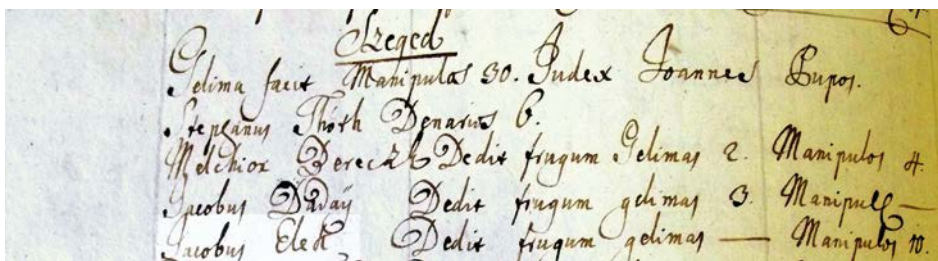 Szeged
Gelima facit Manipulas 30. Judex Joannes Pupos.
Stephanus Thóth Denarius 6.
Melchior Bereczk Dedit frugum Gelimas 2. Manipulos 4.
Jacobus Daday Dedit frugum gelimas 3. Manipul —
Jacobus Elek Dedit frugum gelimas — Manipulos 10.